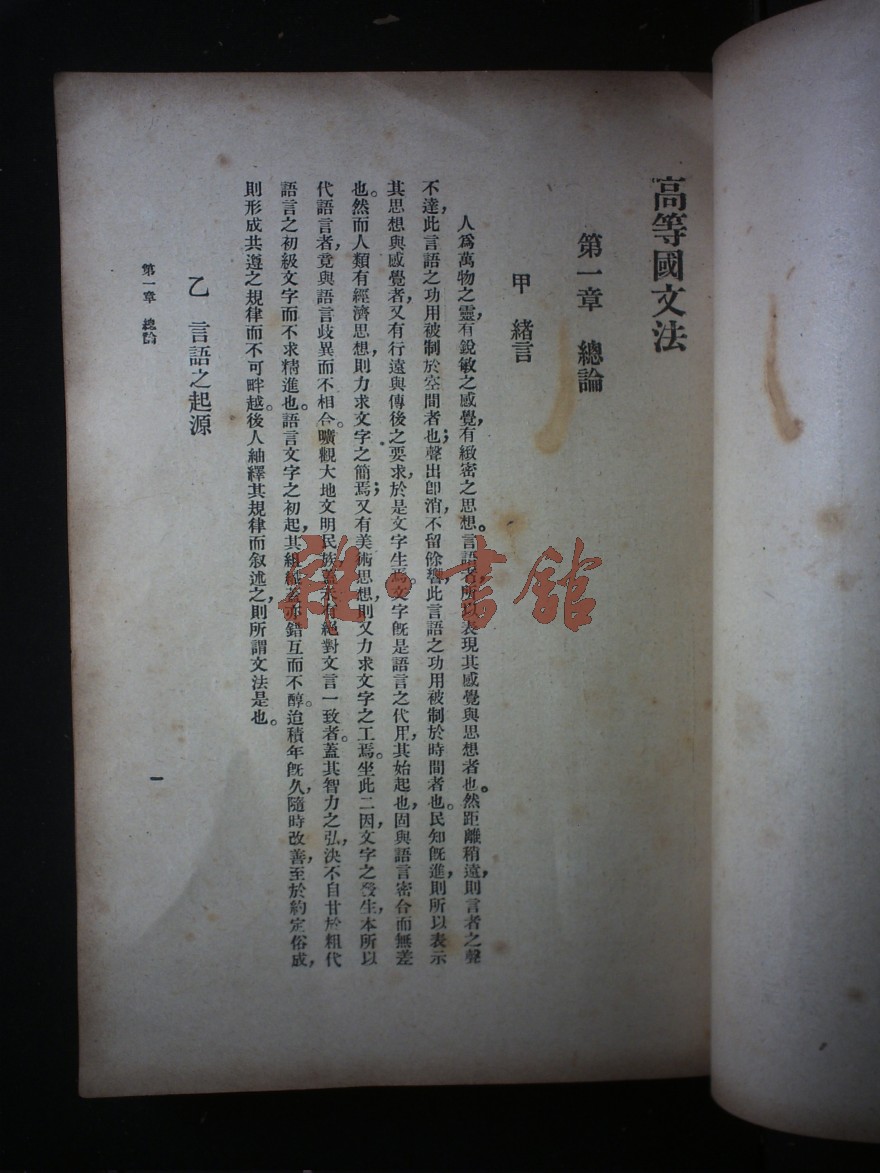 高等國文法
第一章 總論
甲 緒言
人爲萬物之靈,有銳敏之感覺,有緻密之思想。言語者,所以表現其感覺與思想者也。然距離稍遠,則言者之聲
不達,此言語之功用被制於空間者也;聲出卽消,不留餘響,此言語之功用被制於時間者也。民知旣進,則所以表示
其思想與感覺者,又有行遠與傳後之要求,於是文字生焉。文字旣是語言之代用,其始起也,固與語言密合而無差
也。然而人類有經濟思想,則力求文字之簡焉;又有美術思想,則又力求文字之工焉。坐此二因,文字之發生本所以
代語言者,竟與語言歧異而不相合。曠觀大地文明民族,蓋未有絕對文言一致者。蓋其智力之弘,決不自甘於粗代
語言之初級文字而不求精進也。語言文字之初起,其組織蓋亦錯互而不醇。迨積年旣久,隨時改善,至於約定俗成,
則形成共遵之規律而不可畔越。後人紬繹其規律而叙述之,則所謂文法是也。
乙 言語之起源
第一章 總論
一
雜·書館